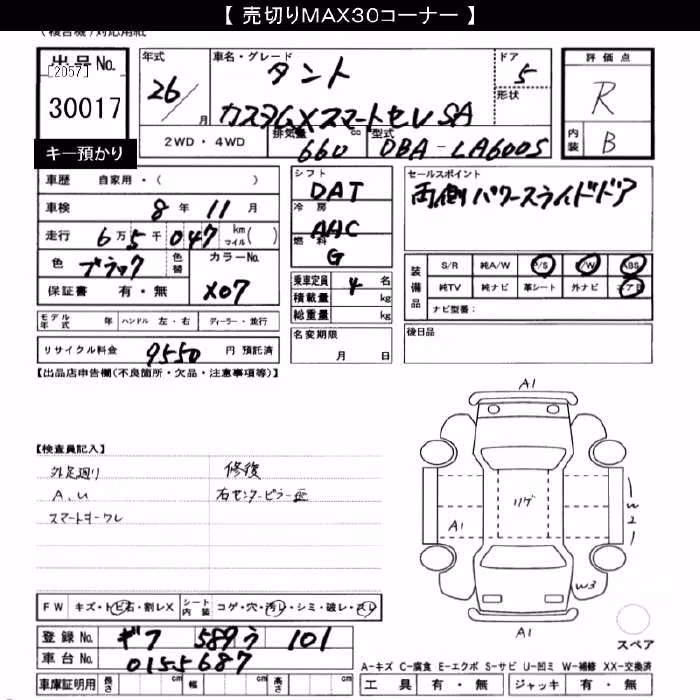 【 売切りMAX30コーナー 】
(複合機)対応用紙
出品No.
[2057]
30017
キー預かり
年式
26
月
車名・グレード
タント
カスタムXスマートセレSA
ドア
5
形状
評価点
R
内装
B
2WD・4WD
排気量
660
cc
型式
DBA-LA600S
車歴 自家用・( )
車検 8年 11月
走行 6万 5千 047 km マイル( )
色 ブラック 色替 カラーNo.
保証書 有・無 X07
シフト
DAT
冷房
AAC
燃料
G
乗車定員 4 名
積載量 kg
総重量 kg
名変期限
月 日
セールスポイント
両側パワースライドドア
装備品
S/R 純A/W P/S P/W ABS
純TV 純ナビ 革シート 外ナビ エアB
ナビ型番:
後日品
モデル年式 年 ハンドル 左・右 ディーラー・並行
リサイクル料金 9550 円 預託済
【出品店申告欄(不良箇所・欠品・注意事項等)】
【検査員記入】
外足廻り
A、U
スマートキークレ
修復
右センターピラー
A1
リゲ
A1
W2
W3
A1
スペア
FW キズ・トビ石・割レX シート内装 コゲ・穴・汚レ・シミ・破レ・スレ
登録No. ギフ 589う 101
車台No. 0155687
車庫証明用 長さ cm 幅 cm 高さ cm
A-キズ C-腐食 E-エクボ S-サビ U-凹ミ W-補修 XX-交換済
工具 有・無 ジャッキ 有・無